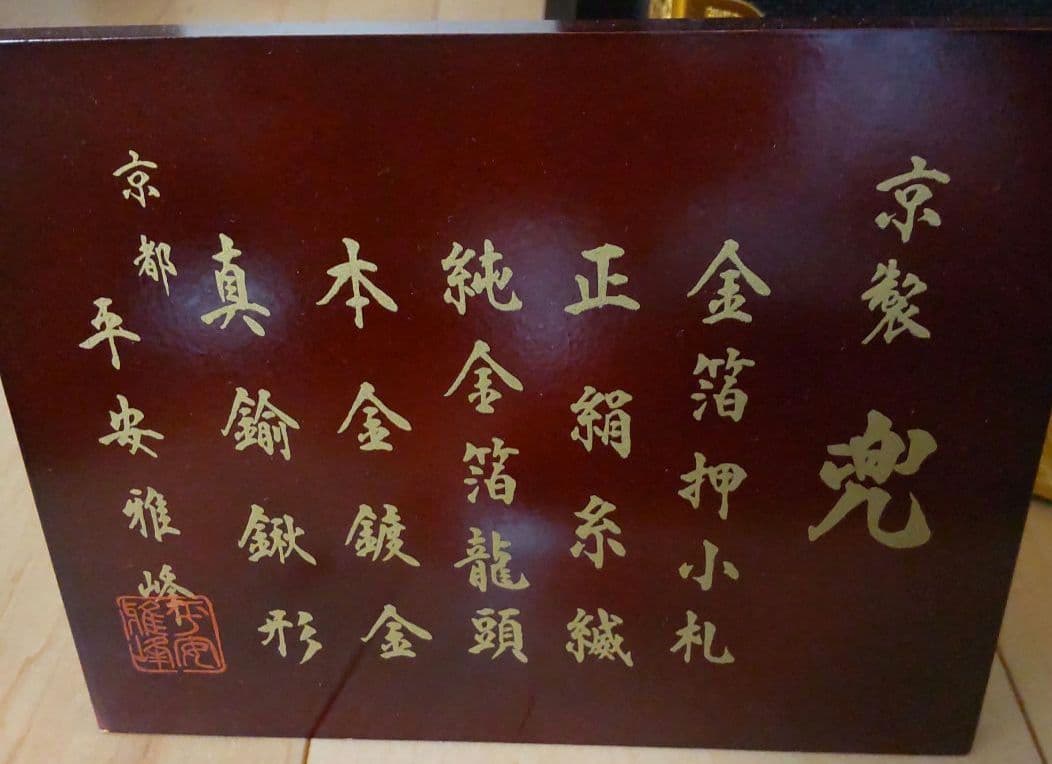 京製 兜
金箔押小札
正絹糸縅
純金箔龍頭
本金鍍金
真鍮鍬形
京都 平安雅峰
平安雅峰